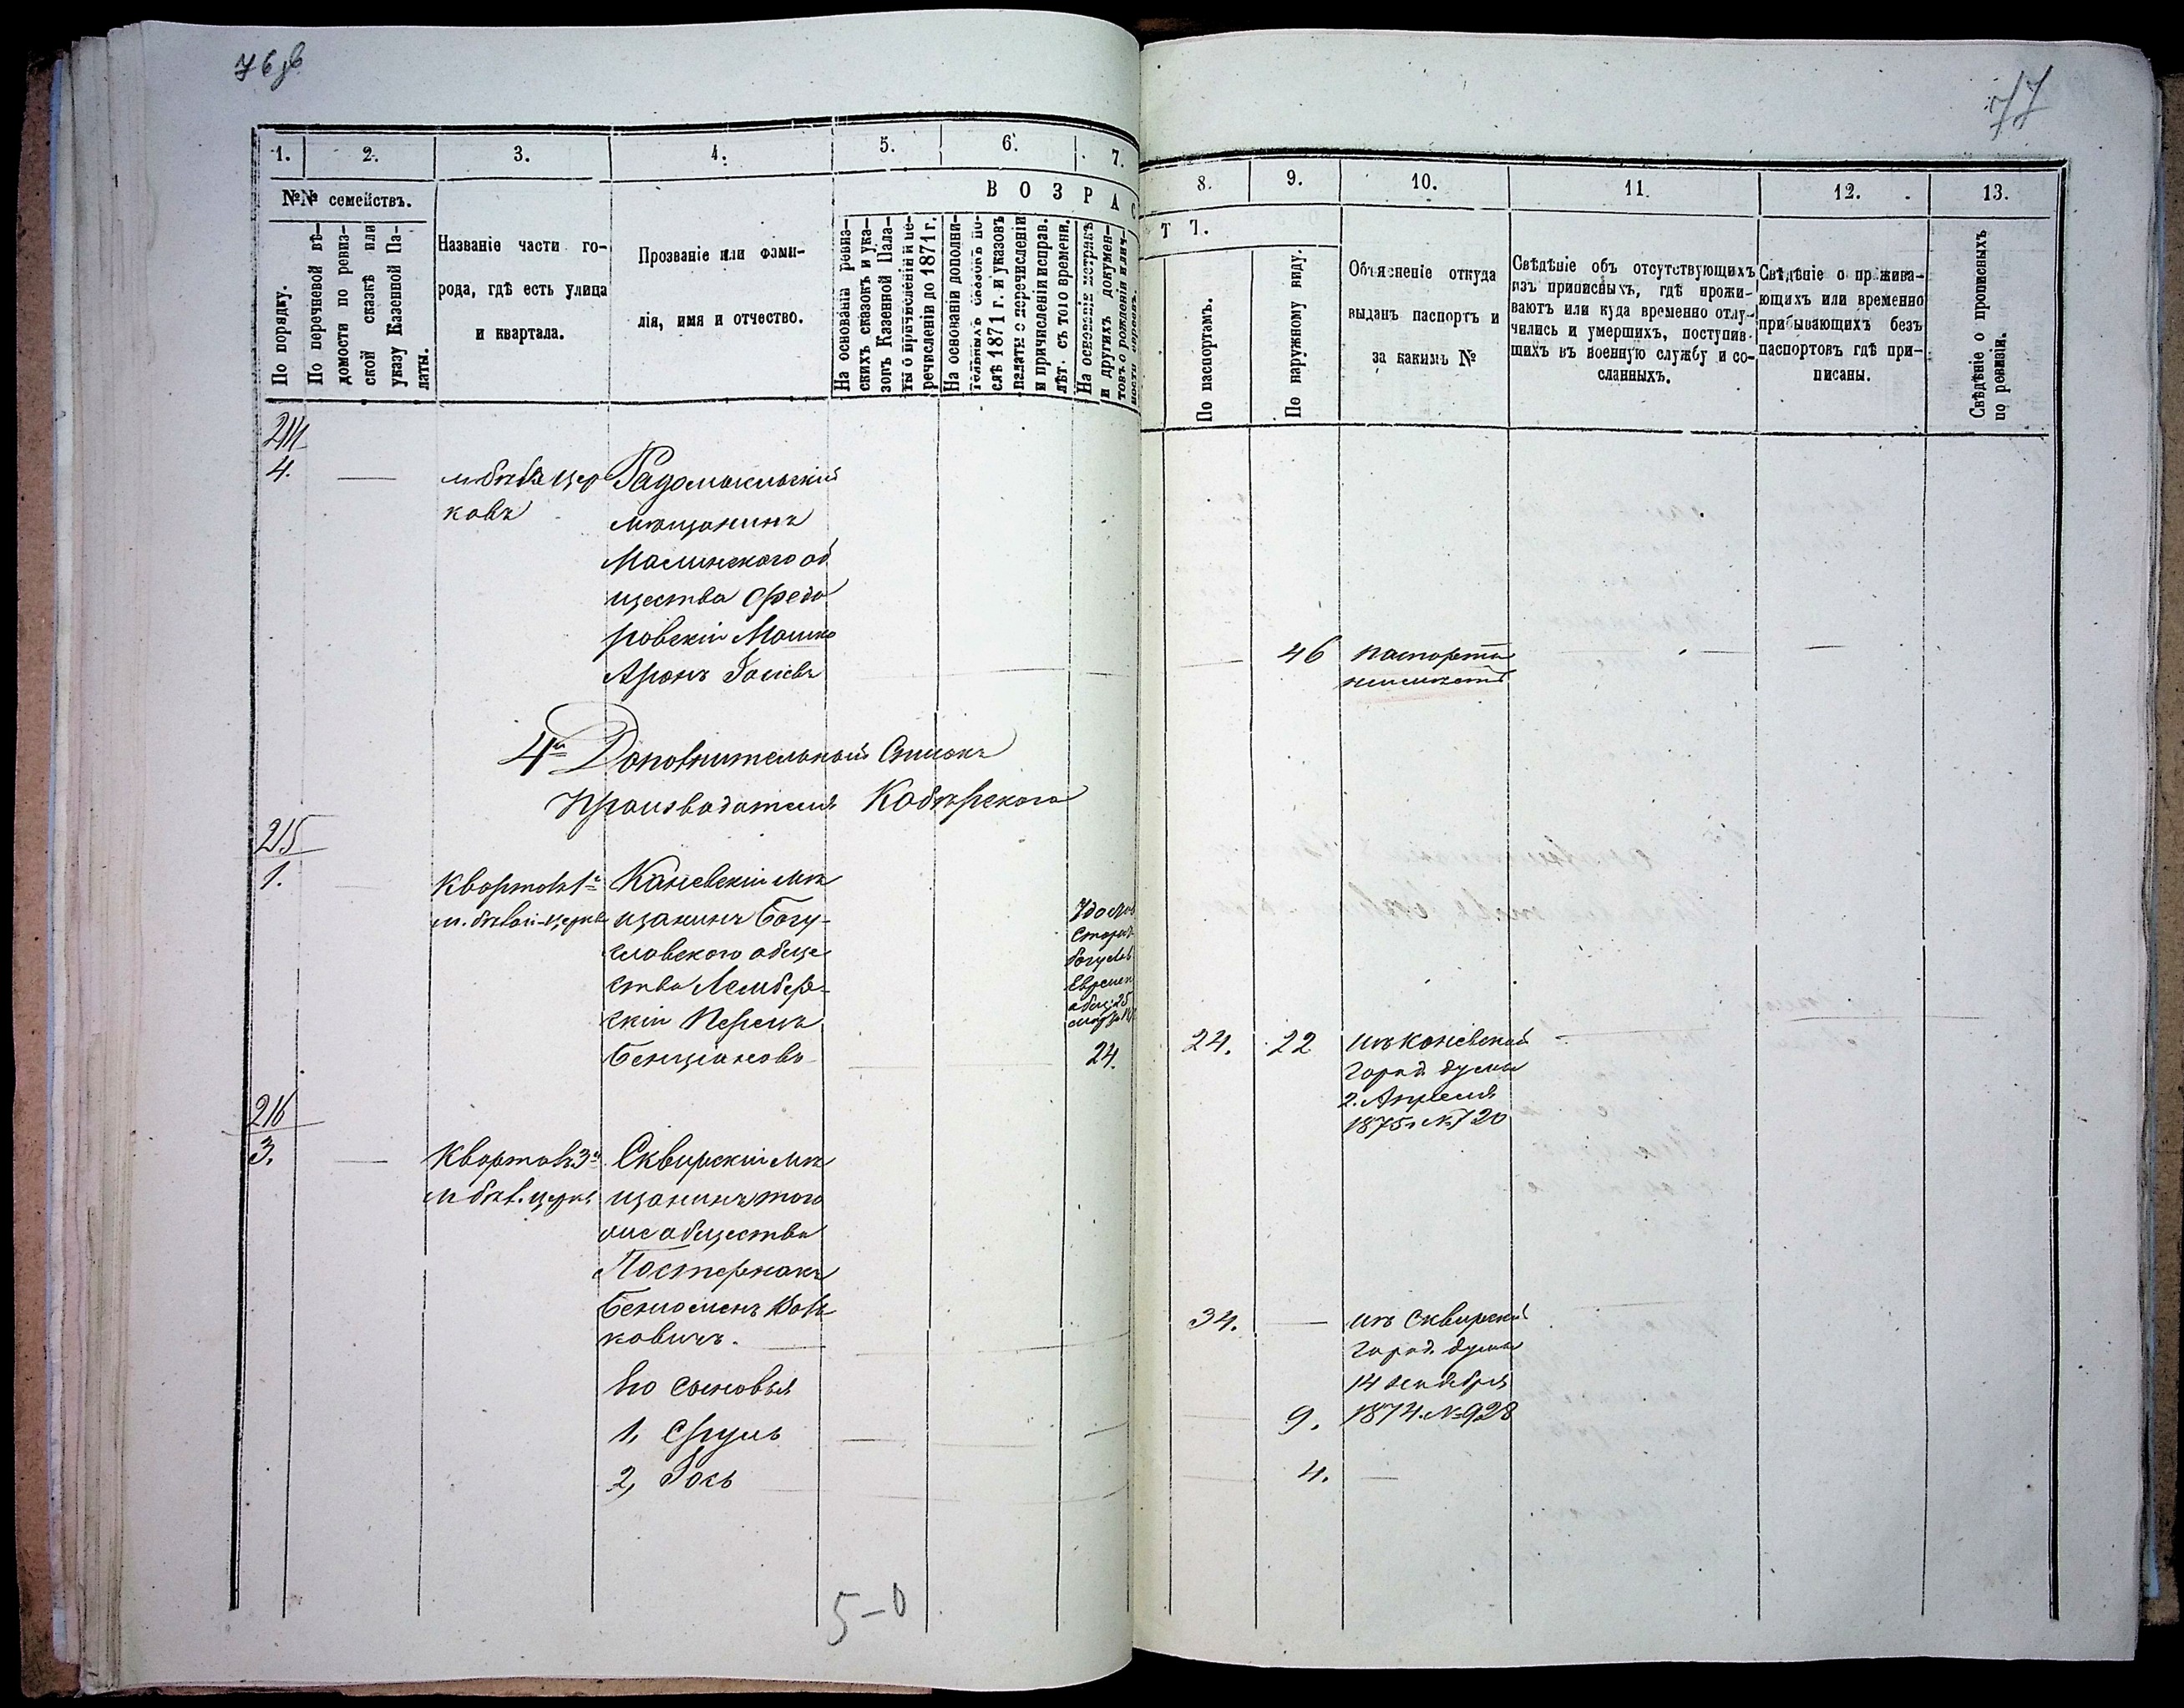 76 об
77
1.
2.
3.
4.
5.
6.
7.
8.
9.
10.
11.
12.
13.
№№ семействъ.
В О З Р А С
Т Ъ.
По порядку.
По перечневой вѣ-
домости по ревиз-
ской сказкѣ или
указу Казенной Па-
латы.
Названіе части го-
рода, гдѣ есть улица
и квартала.
Прозваніе или фами-
лія, имя и отчество.
На основаніи ревиз-
скихъ сказокъ и ука-
зовъ Казенной Пала-
ты о причисленіи и пе-
речисленіи до 1871 г.
На основаніи дополни-
тельныхъ сказокъ по-
слѣ 1871 г. и указовъ
палаты о перечисленіи
и причисленіи исправ.
лѣт. съ того времени.
На основаніи метрикъ
и другихъ докумен-
товъ о рожденіи и лич-
По паспортамъ.
По наружному виду.
Объясненіе откуда
выданъ паспортъ и
за какимъ №
Свѣдѣніе объ отсутствующихъ
изъ приписныхъ, гдѣ прожи-
ваютъ или куда временно отлу-
чились и умершихъ, поступив-
шихъ въ военную службу и со-
сланныхъ.
Свѣдѣніе о прожива-
ющихъ или временно
прибывающихъ безъ
паспортовъ гдѣ при-
писаны.
Свѣдѣніе о прописныхъ
по ревизіи.
214
4.
м бѣла цер
ковь
Радомысльскій
мѣщанинъ
Малинского об
щества Федо
ровскій Мошко
Аронъ
46
паспорта
неимѣетъ
4й Дополнительный Списокъ
Производителя
215
1.
Кварталъ 1й
м. бѣлой-церкв
Каневскій мѣ
щанинъ Богу-
славского обще
ства Лемберг-
скій Перецъ
Бенціоновъ
Богуслав
Еврейск
общ: 25
24.
24.
22
изъ Каневской
город думы
2. Апреля
1875 г №720
216
3.
Кварталъ 3й
м бѣл. церкв
Сквирскій мѣ
щанинъ того
же общества
Постернакъ
ковичъ.
Его сыновья
1, Сруль
2, Іось
34.
изъ Сквирской
город. думы
14
1874. №928
9.
4.
5-0